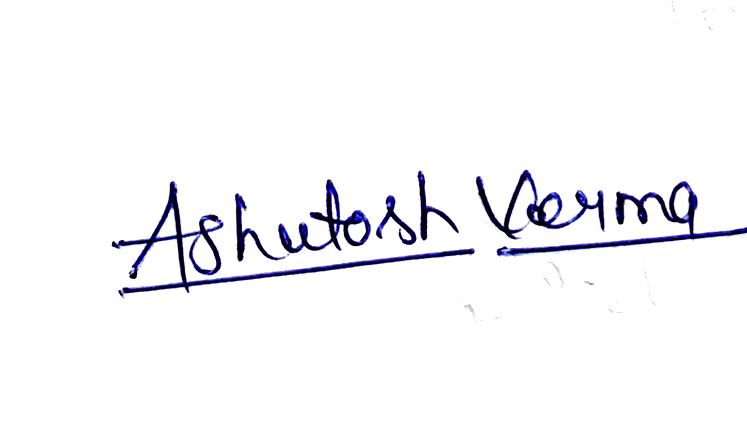 Ashutosh Verma